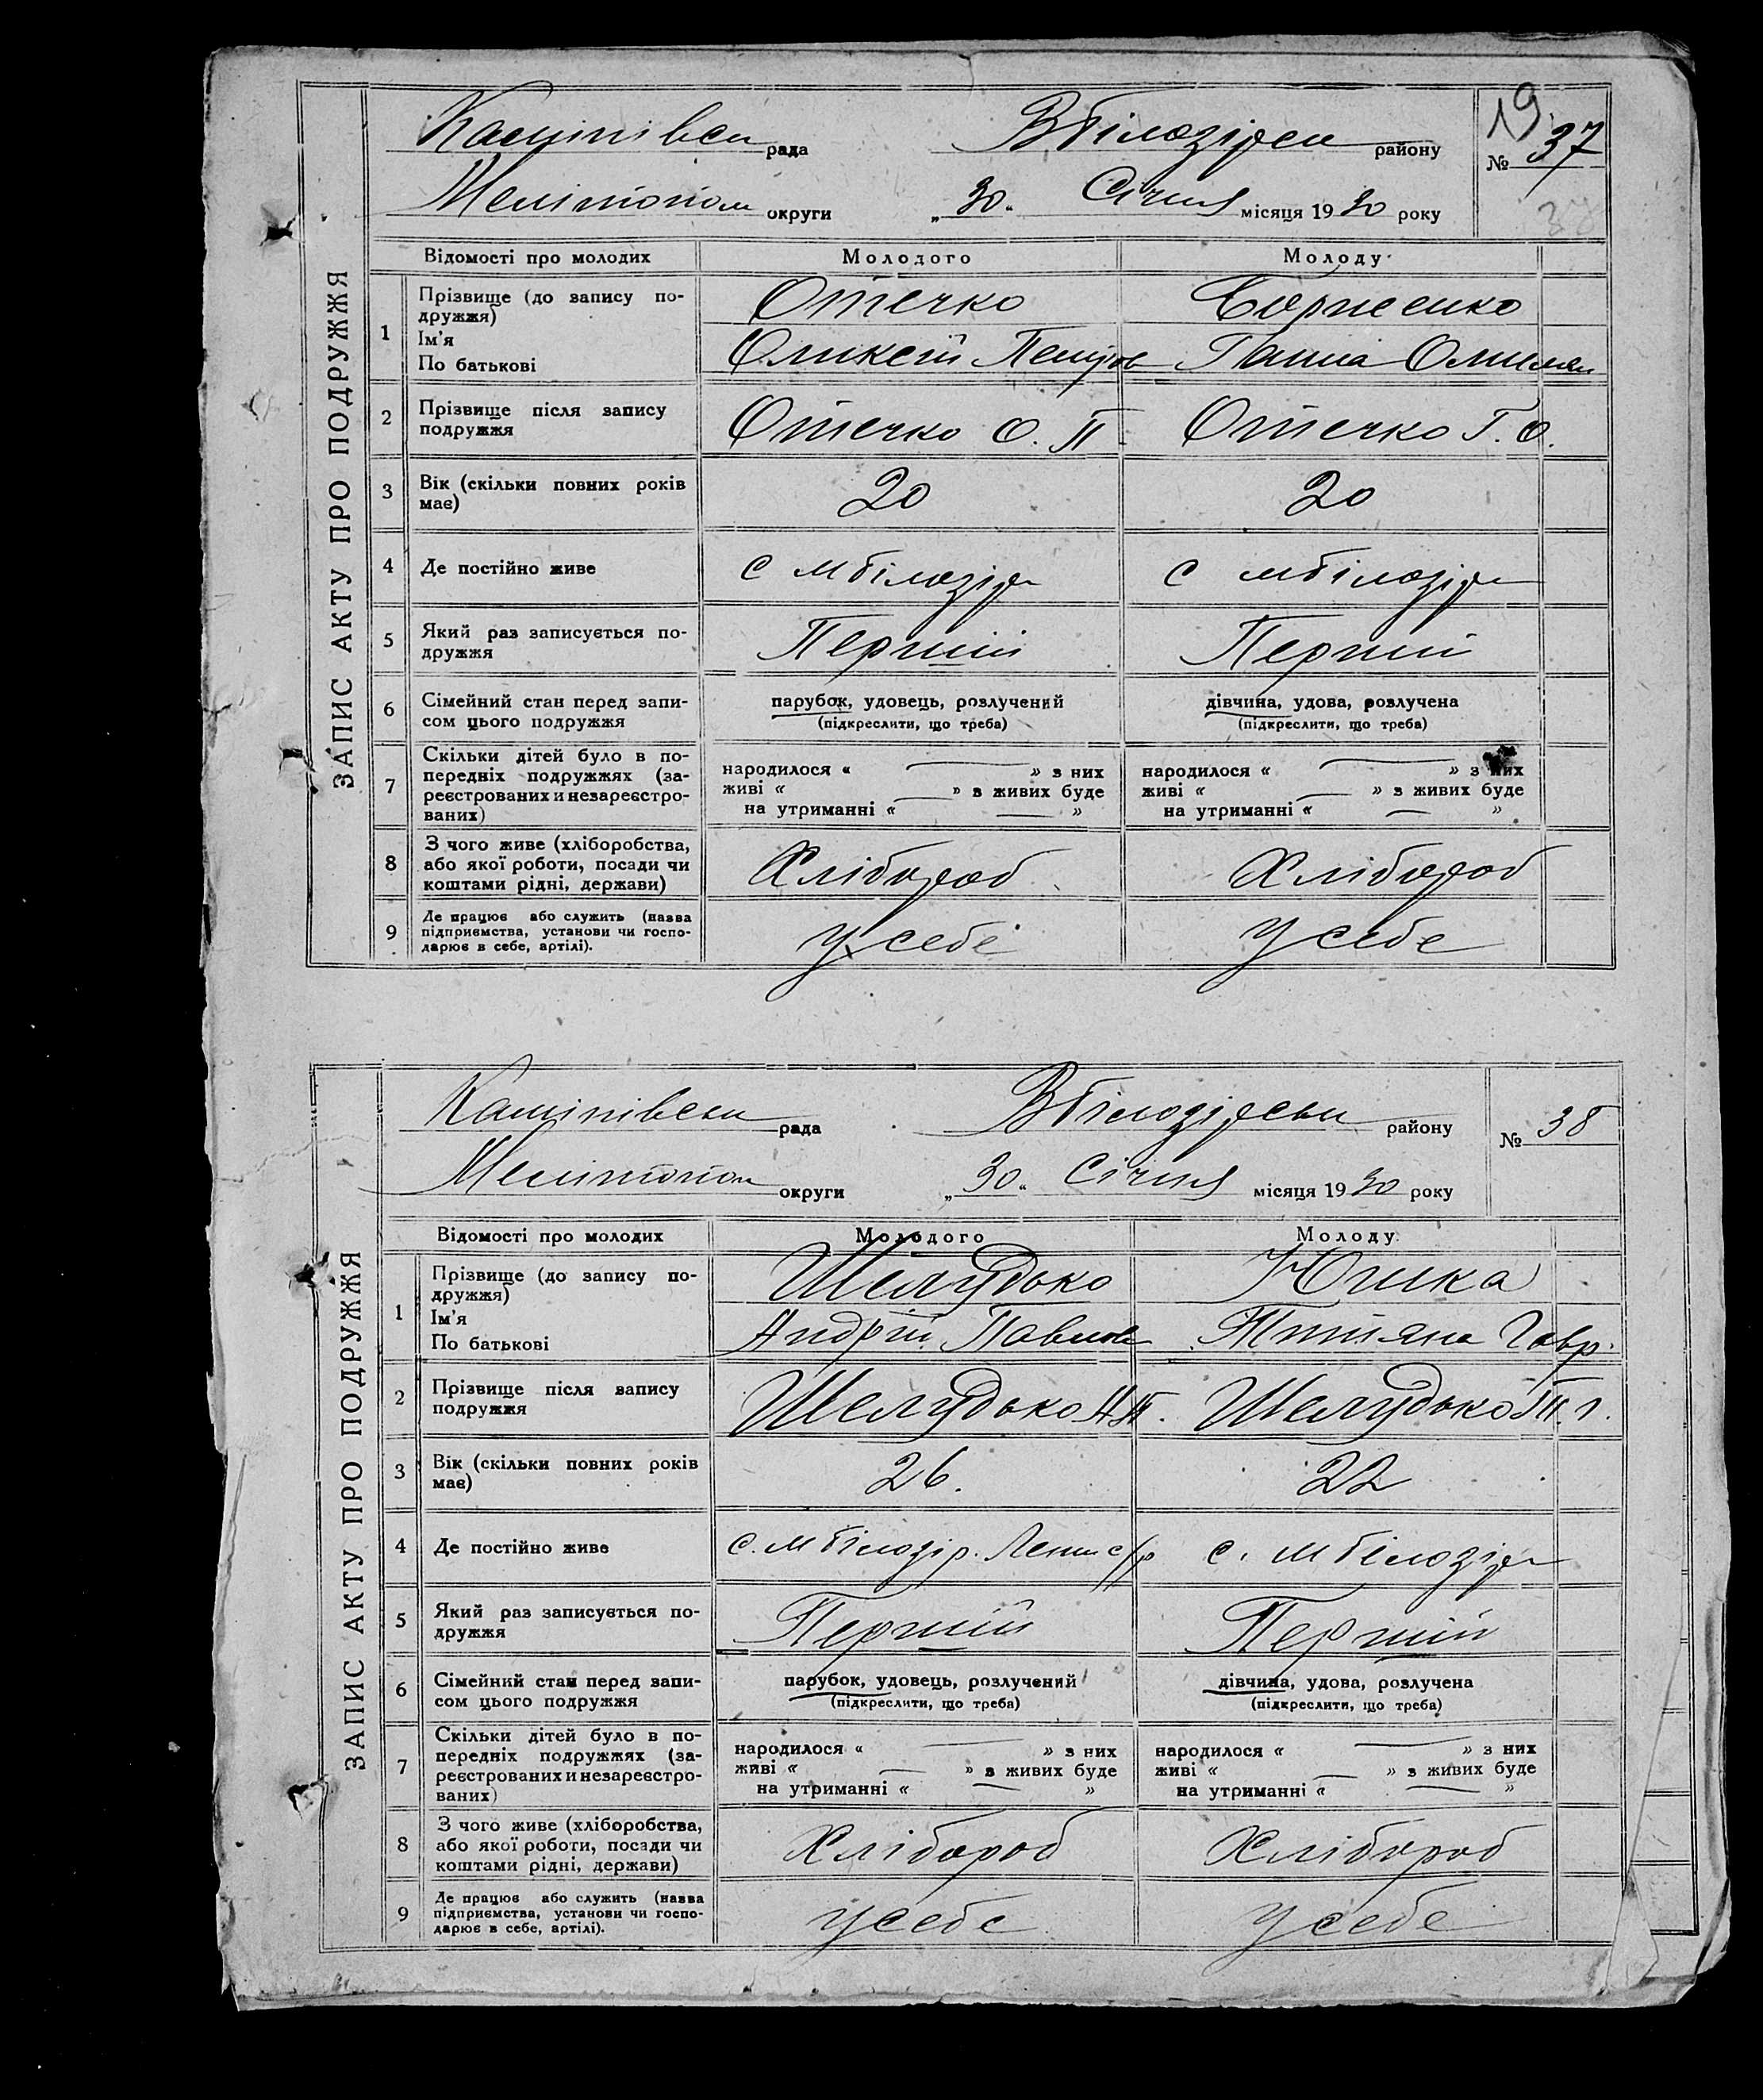 ЗАПИС АКТУ ПРО ПОДРУЖЖЯ
рада
Мелітопол округи
району
„30“ Січня місяця 1930 року
19
№ 37
Відомості про молодих Молодого Молоду
1 Прізвище (до запису по-
дружжя)
Отечко Борисенко
Ім'я
По батькові
Олексій Петров Ганна
2 Прізвище після запису
подружжя
Отечко О. П. Отечко Г. О.
3 Вік (скільки повних років
має)
20 20
4 Де постійно живе
с мбілозір с мбілозір
5 Який раз записується по-
дружжя
Перший Перший
6 Сімейний стан перед запи-
сом цього подружжя
парубок, удовець, розлучений
(підкреслити, що треба)
дівчина, удова, розлучена
(підкреслити, що треба)
7 Скільки дітей було в по-
передніх подружжях (за-
реєстрованих и незареєстро-
ваних)
народилося « » з них
живі « » з живих буде
на утриманні « »
народилося « » з них
живі « » з живих буде
на утриманні « »
8 З чого живе (хліборобства,
або якої роботи, посади чи
коштами рідні, держави)
Хлібороб Хлібороб
9 Де працює або служить (назва
підприємства, установи чи госпо-
дарює в себе, артілі).
У себе У себе
ЗАПИС АКТУ ПРО ПОДРУЖЖЯ
рада
Мелітопол округи
району
„30“ Січня місяця 1930 року
№ 38
Відомості про молодих Молодого Молоду
1 Прізвище (до запису по-
дружжя)
Шелудько Юшка
Ім'я
По батькові
Андрій Павлов Титяна Гавр.
2 Прізвище після запису
подружжя
Шелудько А.П. Шелудько Т. Г.
3 Вік (скільки повних років
має)
26. 22
4 Де постійно живе
с. мбілозір. Ленин с/р с. мбілозір
5 Який раз записується по-
дружжя
Перший Перший
6 Сімейний стан перед запи-
сом цього подружжя
парубок, удовець, розлучений
(підкреслити, що треба)
дівчина, удова, розлучена
(підкреслити, що треба)
7 Скільки дітей було в по-
передніх подружжях (за-
реєстрованих и незареєстро-
ваних)
народилося « » з них
живі « » з живих буде
на утриманні « »
народилося « » з них
живі « » з живих буде
на утриманні « »
8 З чого живе (хліборобства,
або якої роботи, посади чи
коштами рідні, держави)
Хлібороб Хлібороб
9 Де працює або служить (назва
підприємства, установи чи госпо-
дарює в себе, артілі).
У себе У себе